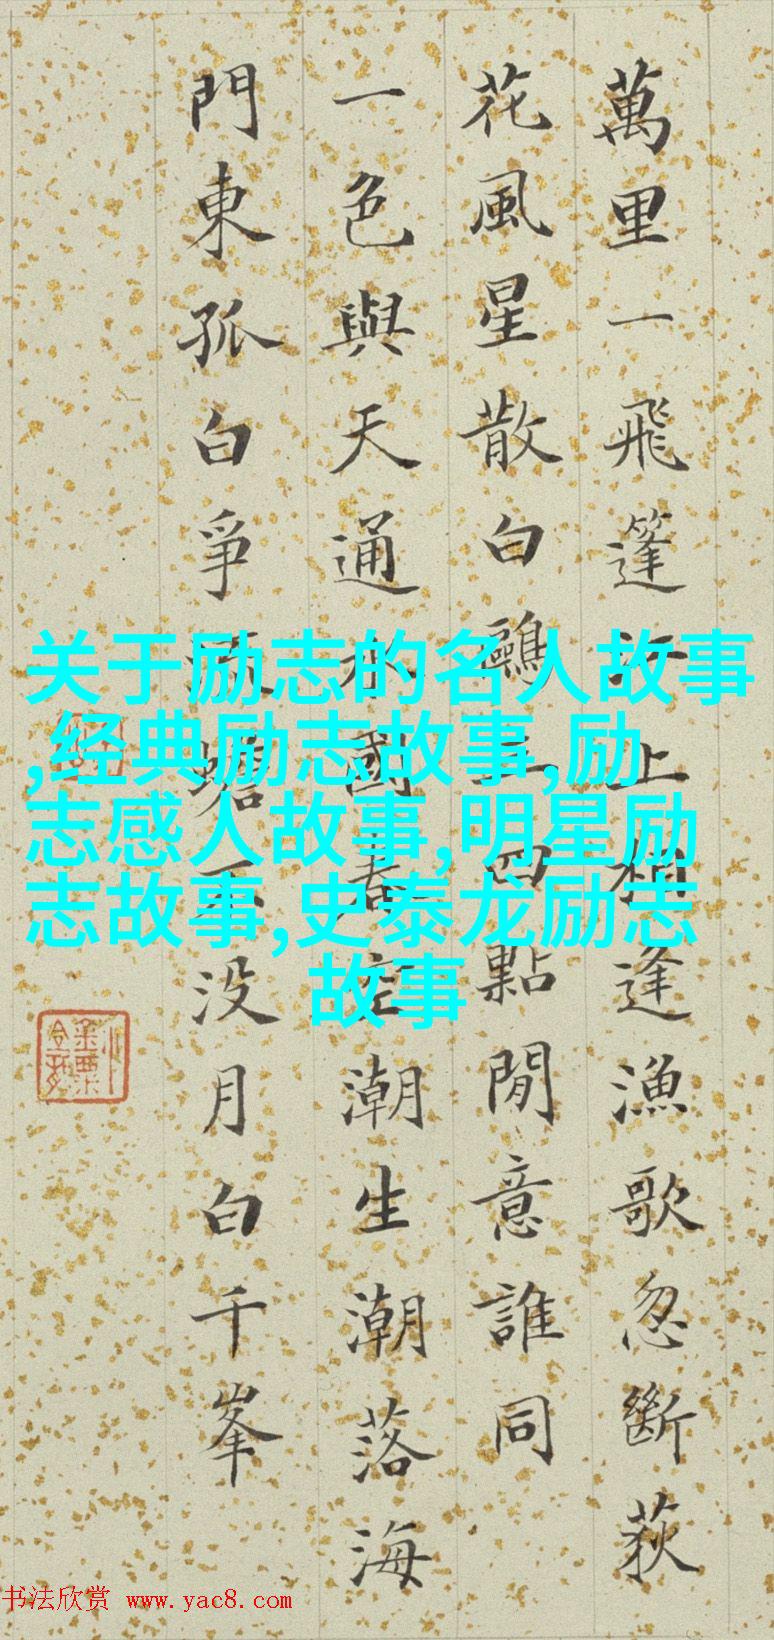 萬里一飛篷上相逢漁歌忽斷荻
花風星散白鷗三四點閒意誰同
一色與天通水國春空潮生潮落海
門東孤白爭蟾不沒月白千峯
关于励志的名人故事
,经典励志故事,励
志感人故事,明星励
志故事,史泰龙励志
故事
书法欣赏 www.yac8.com